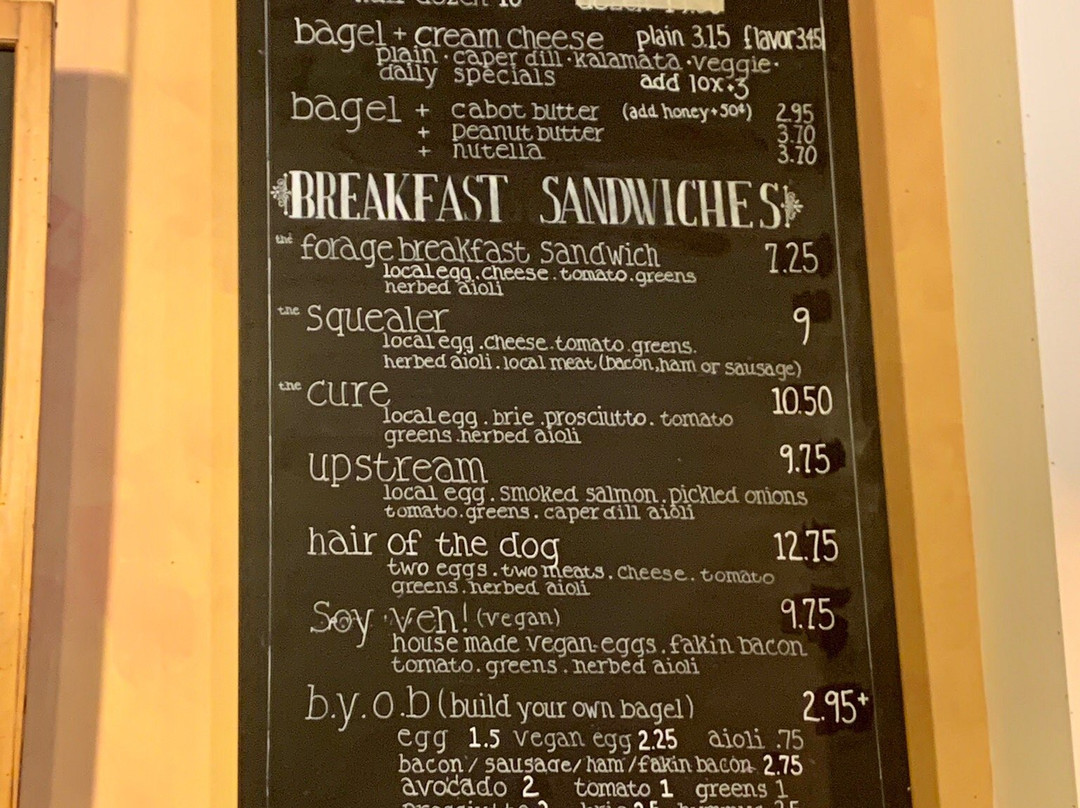 half dozen 10
bagel + cream cheese plain 3.15 flavor 3.45
plain · caper dill · kalamata · veggie ·
daily specials add lox +3
bagel + cabot butter (add honey +50¢) 2.95
+ peanut butter 3.70
+ nutella 3.70
BREAKFAST SANDWICHES
the forage breakfast sandwich 7.25
local egg . cheese . tomato . greens
herbed aioli
the squealer 9
local egg . cheese . tomato . greens .
herbed aioli . local meat (bacon, ham or sausage)
the cure 10.50
local egg . brie . prosciutto . tomato
greens . herbed aioli
upstream 9.75
local egg . smoked salmon . pickled onions
tomato . greens . caper dill aioli
hair of the dog 12.75
two eggs . two meats . cheese . tomato
greens . herbed aioli
Soy veh! (vegan) 9.75
house made vegan eggs . fakin bacon
tomato . greens . herbed aioli
b.y.o.b (build your own bagel) 2.95+
egg 1.5 vegan egg 2.25 aioli .75
bacon / sausage / ham / fakin bacon 2.75
avocado 2 tomato 1 greens 1